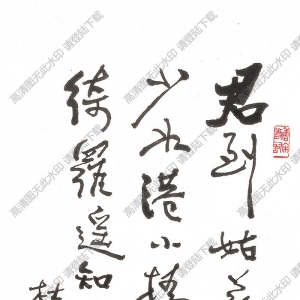 君到姑
少水港小橋
綺羅遥知
高清图无此水印 请登陆下载